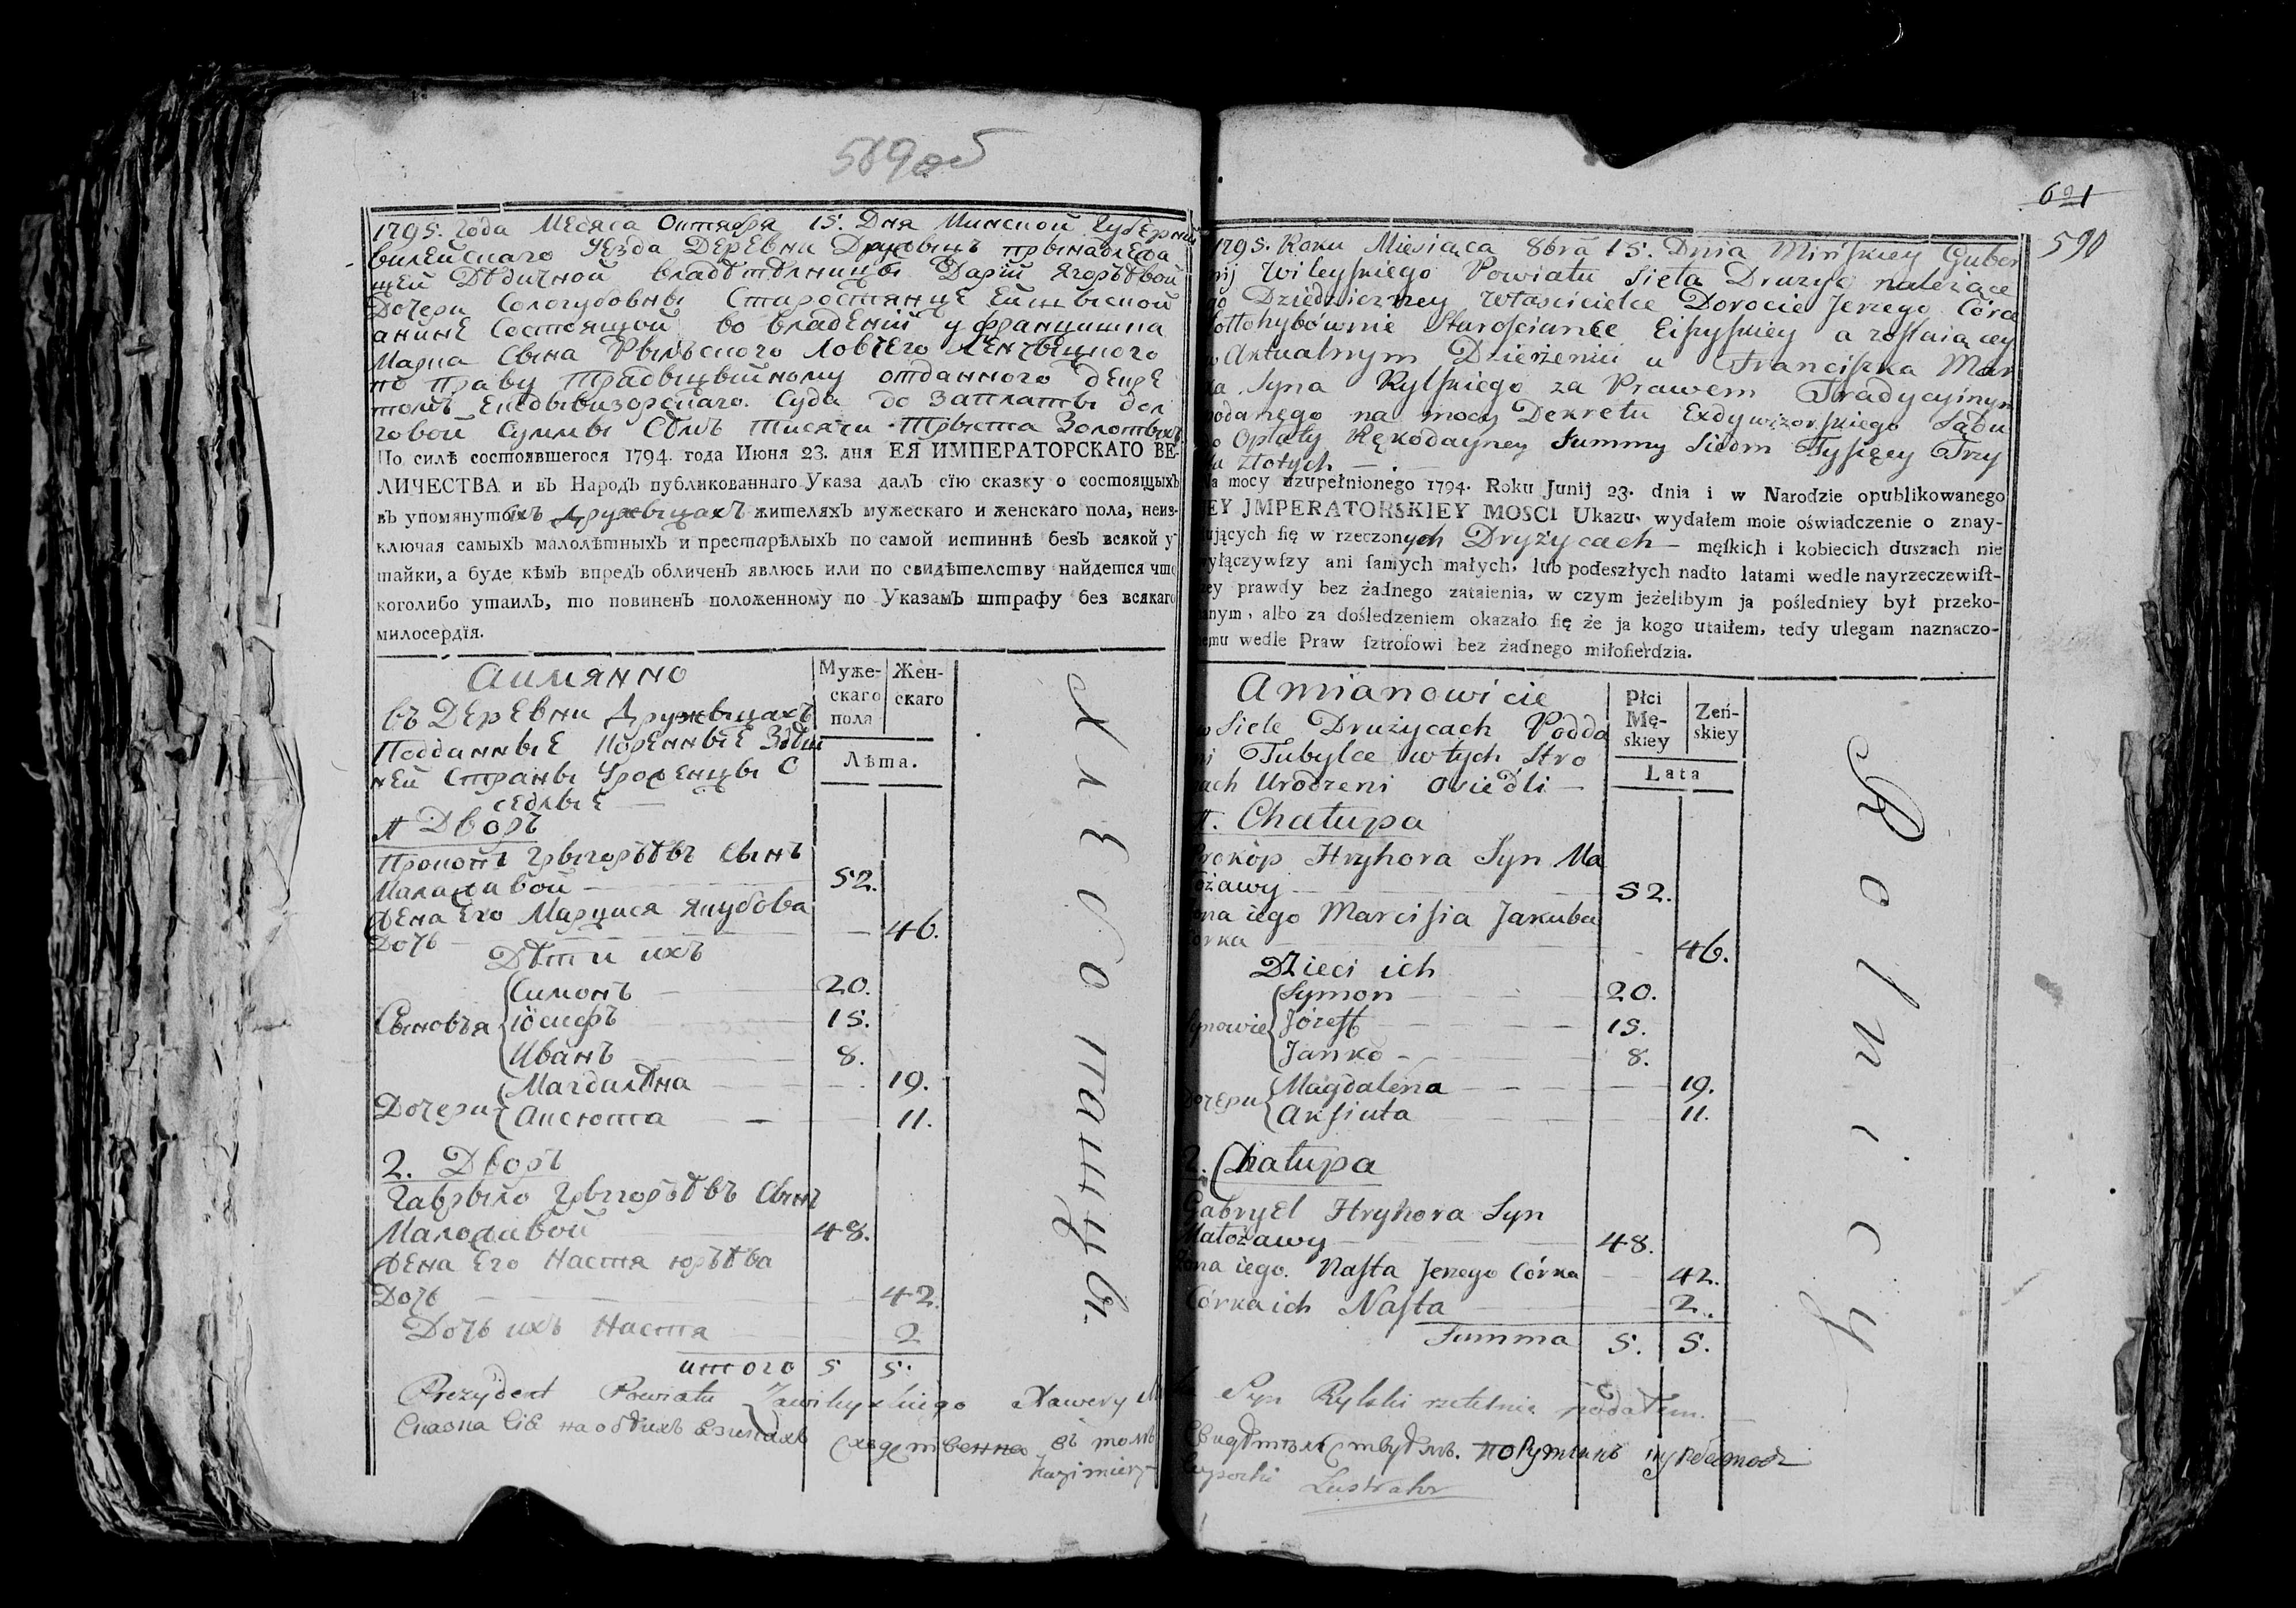 569 об
1795. Года Месяса Октября 15. Дня Минской Губернии
Вилейскаго Уезда Деревни Дружыцъ прынадлежа
щей Дѣдичной владѣтелницы Дарїи Ягорѣвой
Дочери Сологубовны Старостянце Ейшыской
анине состоящой во владенїи у Францишка
Марка Сына Рыльского Ловчего
по праву традыцыйному отданного декре
томъ Ексдывизорскаго Суда до заплаты дол
говой суммы Семъ тисячи Трыста Золотыхъ
По силѣ состоявшегося 1794. года Июня 23. дня ЕЯ ИМПЕРАТОРСКАГО ВЕ-
ЛИЧЕСТВА и въ Народъ публикованнаго Указа далъ сїю сказку о состоящыхъ
въ упомянутыхъ Дружыцахъ жителяхъ мужескаго и женскаго пола, неиз-
ключая самыхъ малолѣтныхъ и престарѣлыхъ по самой истиннѣ безъ всякой у
тайки, а буде кѣмъ впредъ обличенъ явлюсь или по свидѣтелству найдется что
коголибо утаилъ, то повиненъ положенному по Указамъ штрафу без всякаго
милосердїя.
Аимянно
въ Деревни Дружыцахъ
Подданные коренные Здѣш
ней страны Уроженцы О
седлые
Муже-
скаго
пола
Жен-
скаго
Лѣта.
1 Дворъ
Прокопъ Грыгорѣвъ Сынъ
Маложавой 52.
Жена Его Марцися Якубова
Дочь 46.
Дѣти ихъ
Сыновъя
Симонъ 20.
Іосифъ 15.
Иванъ 8.
Дочери
Магдалѣна 19.
Аксюта 11.
2. Дворъ
Гаврыло Грыгорѣвъ Сынъ
Маложавой 48.
Жена Его Настя Юрѣва
Дочь 42.
Дочь ихъ Настя 2
итого 5 5.
Хлебопашцы.
Prezydent Powiatu Zawileyskiego Xawery
Сказка Сiя на обѣихъ Языкахъ сходственна въ томъ
Kazimierz
621
590
1795. Roku Miesiąca 8bra 15. Dnia Mińskiey Guber
nij Wileyskiego Powiatu Sieła Drużyc należące
go Dziedziczney Właścicielce Dorocie Jerzego Córce
Sołłohubównie Starościance Eiszyskiey a zostaiącey
w Aktualnym Dzierżeniu u Franciszka Mar
ka Syna Rylskiego za Prawem Tradycyinym
podanego na mocy Dekretu Exdywizorskiego Sądu
do Opłaty Rękodayney Summy Siedm Tysięcy Trzy
sta złotych
Na mocy uzupełnionego 1794. Roku Junij 23. dnia i w Narodzie opublikowanego
JEY JMPERATORSKIEY MOSCI Ukazu, wydałem moie oświadczenie o znay-
dujących się w rzeczonych Drużycach męskich i kobiecich duszach nie
wyłączywszy ani samych małych, lub podeszłych nadto latami wedle nayrzeczewist-
szey prawdy bez żadnego zataienia, w czym jeżelibym ja pośledniey był przeko-
nanym, albo za dośledzeniem okazało się że ja kogo utaiłem, tedy ulegam naznaczo-
nemu wedle Praw sztrofowi bez żadnego miłosierdzia.
Amianowicie
w Siele Drużycach Podda
ni Tubylce w tych Stro
nach Urodzeni Osiedli
Płci
Mę-
skiey
Żeń-
skiey
Lata
1. Chałupa
Prokop Hryhora Syn Ma
łożawy 52.
Żona iego Marcisia Jakuba
Córka 46.
Dzieci ich
Synowie
Symon 20.
Józeff 15.
Janko 8.
Дочери
Magdalena 19.
Aksiuta 11.
2. Chałupa
Gabryel Hryhora Syn
Małożawy 48.
Żona iego Nasta Jerzego Córka 42.
Córka ich Nasta 2.
Summa 5. 5.
Rolnicy
Syn Rylski rzetelnie podałem.
Свидѣтельствуемъ. Порутчикъ
Lustrator